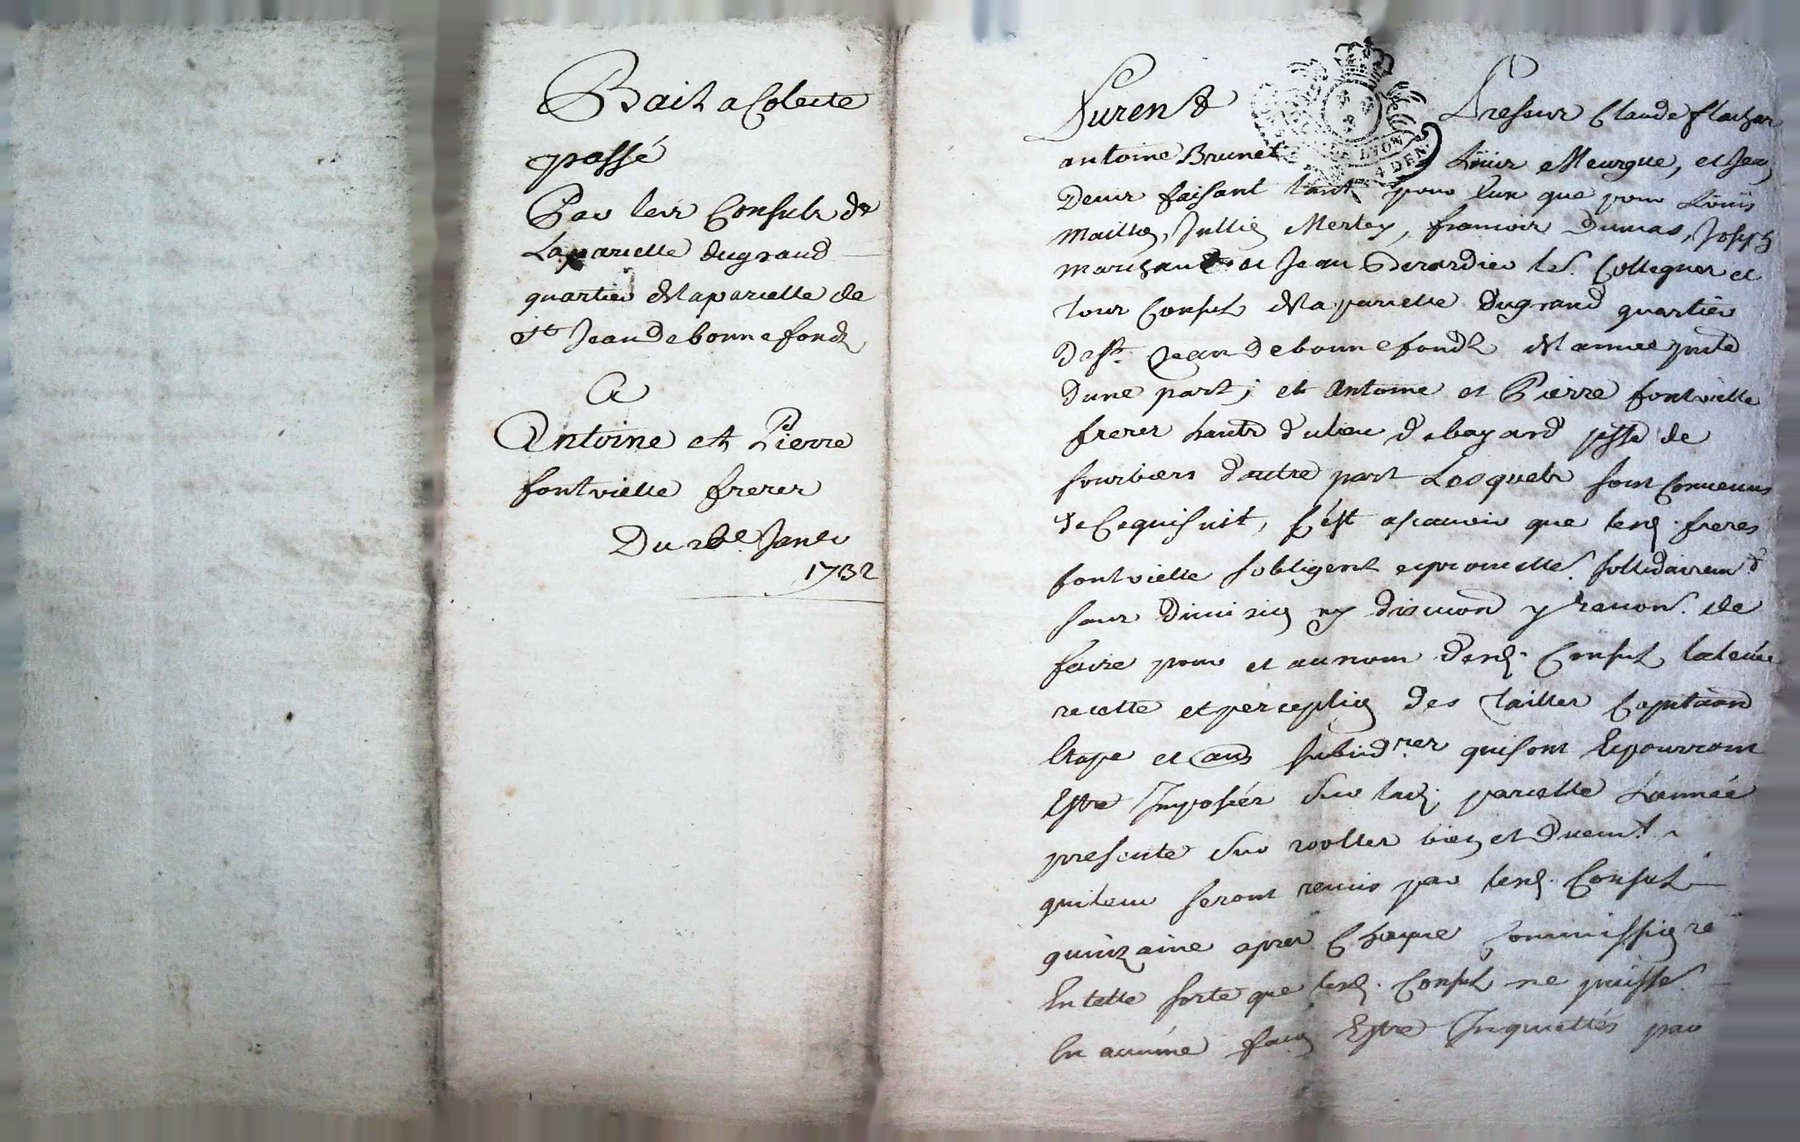 Bail a Colecte
passé
Par les Consuls de
La parcelle du grand
quartier de la parcelle de
St Jean de bonnefondz
A
Antoine et Pierre
fontvielle freres
Du 28e Janer
1732
Furent Presens Claude flachar
antoine Brunet Loüis Meurgue, et Jean
Devis faisant tant pour eux que pour Loüis
Maillon, Jullien Merley, francois Dumas, Joseph
Marchand et Jean Gerardier les. Collegues et
tous Consuls de la parcelle du grand quartier
de St. Jean de bonnefondz de l'annee pnte
dune part; et Antoine et Pierre fontvielle
freres hants du lieu de bayard psse de
sourbiers d'autre part Lesquels sont convenus
de Ce qui suit, C'est ascavoir que lesd. freres
fontvielle s'obligent et promette. sollidairemt
sans division ny discution y renon. de
faire pour et au nom desd. Consuls la levée
recette et perception des tailles Capitaon
Etape et aus subsid.res qui sont Et pourront
Estre Imposés sur lad. parcelle L'année
presente sur roolles bien et duemt.
qui leur seront remis par lesd. Consuls
quinzaine apres Chaque Commission re
En telle sorte que lesd. Consuls ne puisse.
En aucune facon Estre Inquiettés par